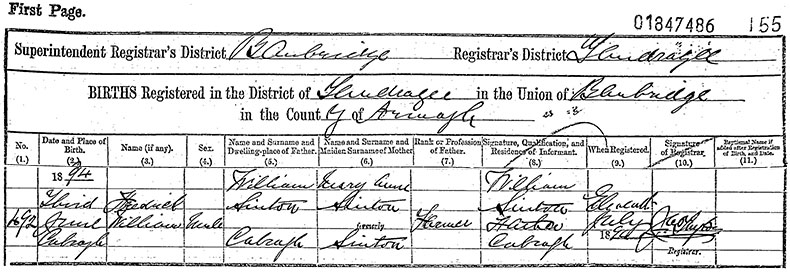 First Page.
01847486 155
Superintendent Registrar's District Banbridge Registrar's District Tandragee
BIRTHS Registered in the District of Tandragee in the Union of Banbridge
in the County of Armagh
No. (1.) Date and Place of Birth. (2.) Name (if any). (3.) Sex. (4.) Name and Surname and Dwelling-place of Father. (5.) Name and Surname and Maiden Surname of Mother. (6.) Rank or Profession of Father. (7.) Signature, Qualification, and Residence of Informant. (8.) When Registered. (9.) Signature of Registrar. (10.) Baptismal Name if added after Registration of Birth, and Date. (11.)
1894 William Mary Anne William
Third Fredrick Sinton Sinton Sinton
June William Male formerly Farmer Father July
Cabragh Cabragh Sinton Cabragh 1894 Registrar.